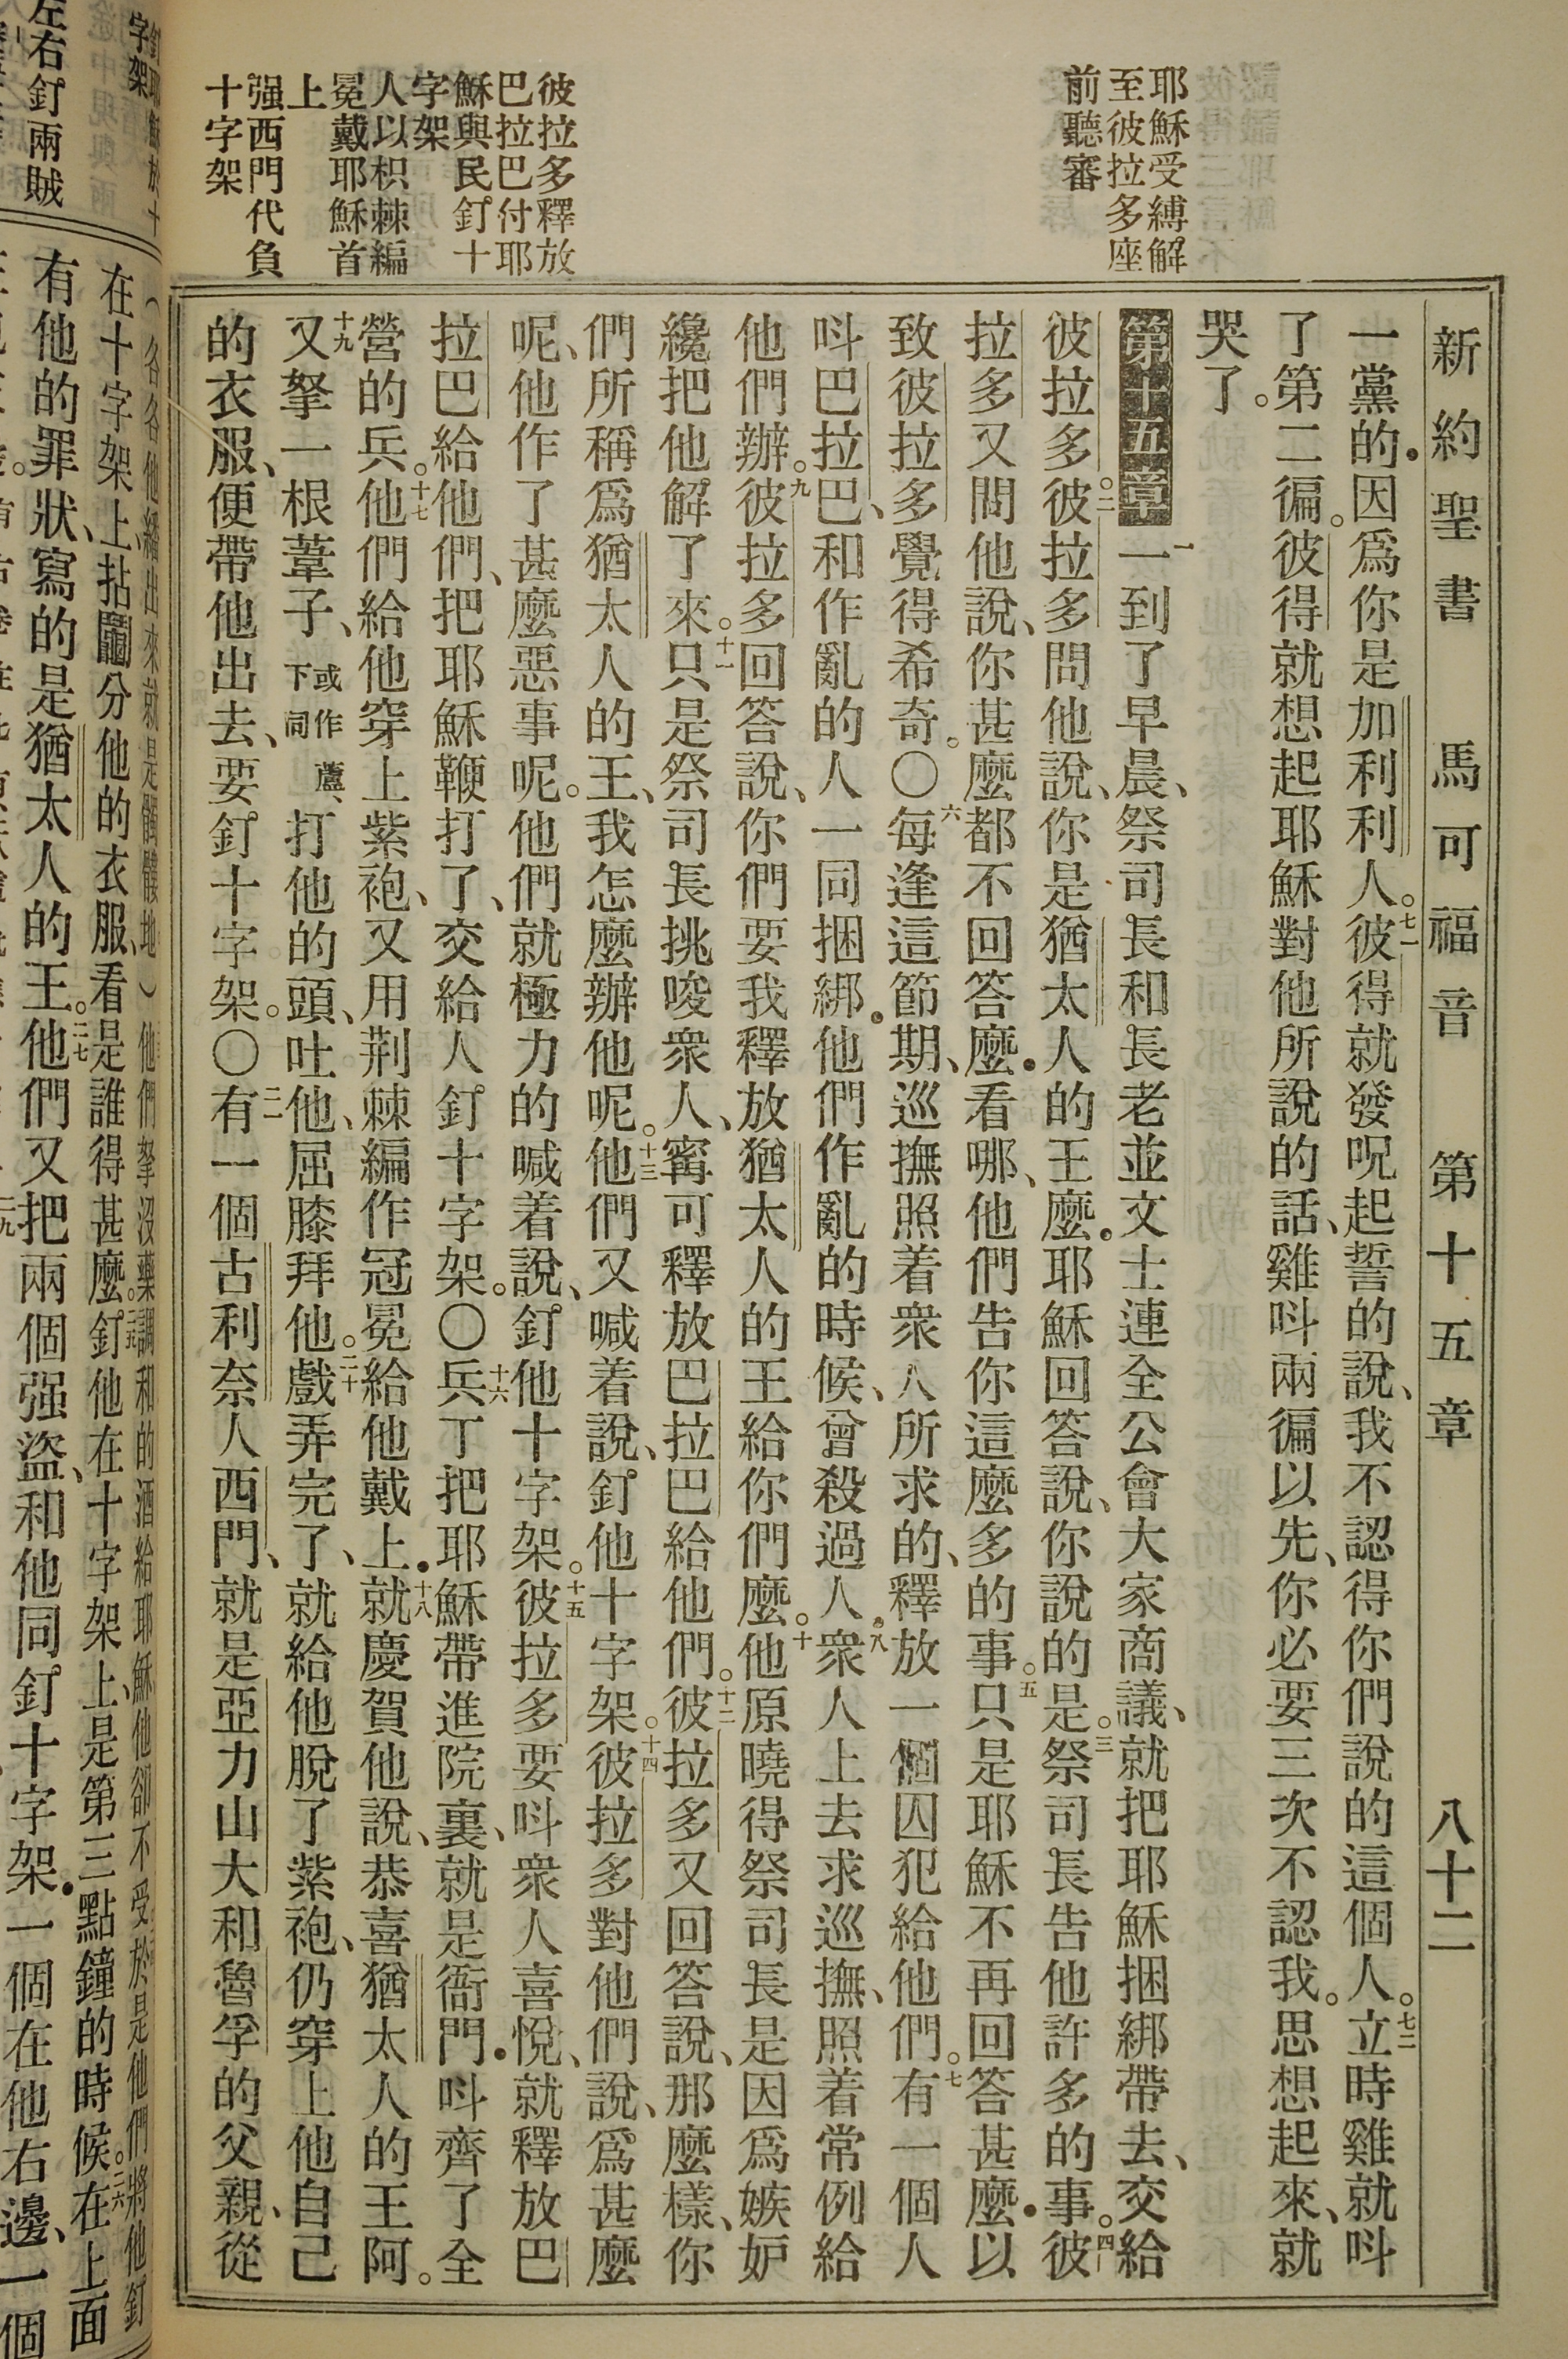 新約聖書　馬可福音　第十五章　八十二
耶穌受縛解
至彼拉多座
前聽審
彼拉多釋放
巴拉巴付耶
穌與民釘十
字架
人以枳棘編
冕戴耶穌首
上
强西門代負
十字架
一黨的•因爲你是加利利人。七一彼得就發呪起誓的說、我不認得你們說的這個人。七二立時雞就呌
了第二徧。彼得就想起耶穌對他所說的話、雞呌兩徧以先、你必要三次不認我。思想起來、就
哭了。
第十五章　一一到了早晨、祭司長和長老並文士連全公會大家商議、就把耶穌捆綁帶去、交給
彼拉多。二彼拉多問他說、你是猶太人的王麽•耶穌回答說、你說的是。三祭司長告他許多的事。四彼
拉多又問他說、你甚麽都不回答麽•看哪、他們告你這麽多的事。五只是耶穌不再回答甚麽•以
致彼拉多覺得希奇。〇六每逢這節期、巡撫照着衆人所求的、釋放一個囚犯給他們。七有一個人
呌巴拉巴、和作亂的人一同捆綁•他們作亂的時候、曾殺過人。八衆人上去求巡撫、照着常例給
他們辦。九彼拉多回答說、你們要我釋放猶太人的王給你們麽。十他原曉得祭司長是因爲嫉妒
纔把他解了來。十一只是祭司長挑唆衆人、寗可釋放巴拉巴給他們。十二彼拉多又回答說、那麽樣、你
們所稱爲猶太人的王、我怎麽辦他呢。十三他們又喊着說、釘他十字架。十四彼拉多對他們說、爲甚麽
呢、他作了甚麽惡事呢。他們就極力的喊着說、釘他十字架。十五彼拉多要呌衆人喜悅、就釋放巴
拉巴給他們、把耶穌鞭打了、交給人釘十字架。〇十六兵丁把耶穌帶進院裏、就是衙門•呌齊了全
營的兵。十七他們給他穿上紫袍、又用荆棘編作冠冕給他戴上•十八就慶賀他說、恭喜猶太人的王阿。
十九又拏一根葦子、或作蘆、下同打他的頭、吐他、屈膝拜他。二十戲弄完了、就給他脫了紫袍、仍穿上他自己
的衣服、便帶他出去、要釘十字架。〇二一有一個古利奈人西門、就是亞力山大和魯孚的父親、從
字架
左右釘兩賊
（各各他繙出來就是髑髏地）他們拏沒藥調和的酒給耶穌、他卻不受於是他們將他釘
在十字架上、拈鬮分他的衣服、看是誰得甚麽。二五釘他在十字架上、是第三點鐘的時候。二六在上面
有他的罪狀、寫的是猶太人的王。二七他們又把兩個强盜、和他同釘十字架•一個在他右邊、一個